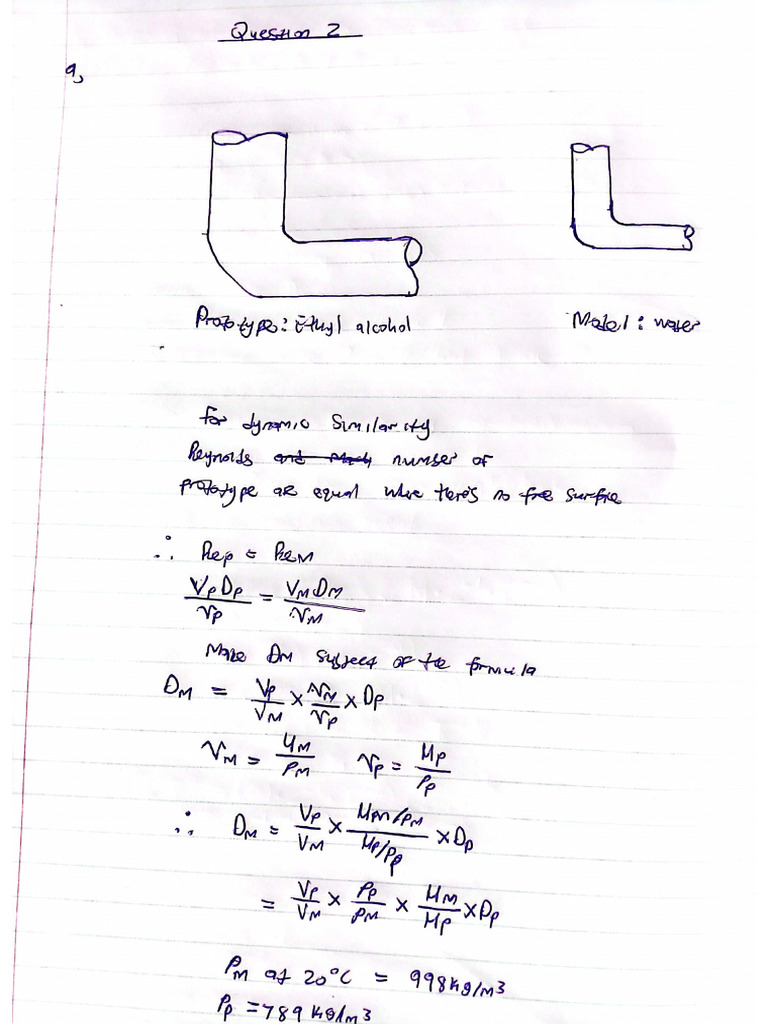 Question 2
a,
Prototype: Ethyl alcohol
Model: water
For dynamic Similarity
Reynolds and Mach number of
prototype are equal where there's no free surface
∴ Rep = ReM
VpDp/νp = VMDM/νM
Make DM subject of the formula
DM = Vp/VM × νM/νp × Dp
νM = μM/ρM νp = μp/ρp
∴ DM = Vp/VM × μM/ρM/μp/ρp × Dp
= Vp/VM × ρp/ρM × μM/μp × Dp
ρM at 20°C = 998kg/m3
ρp = 789 kg/m3